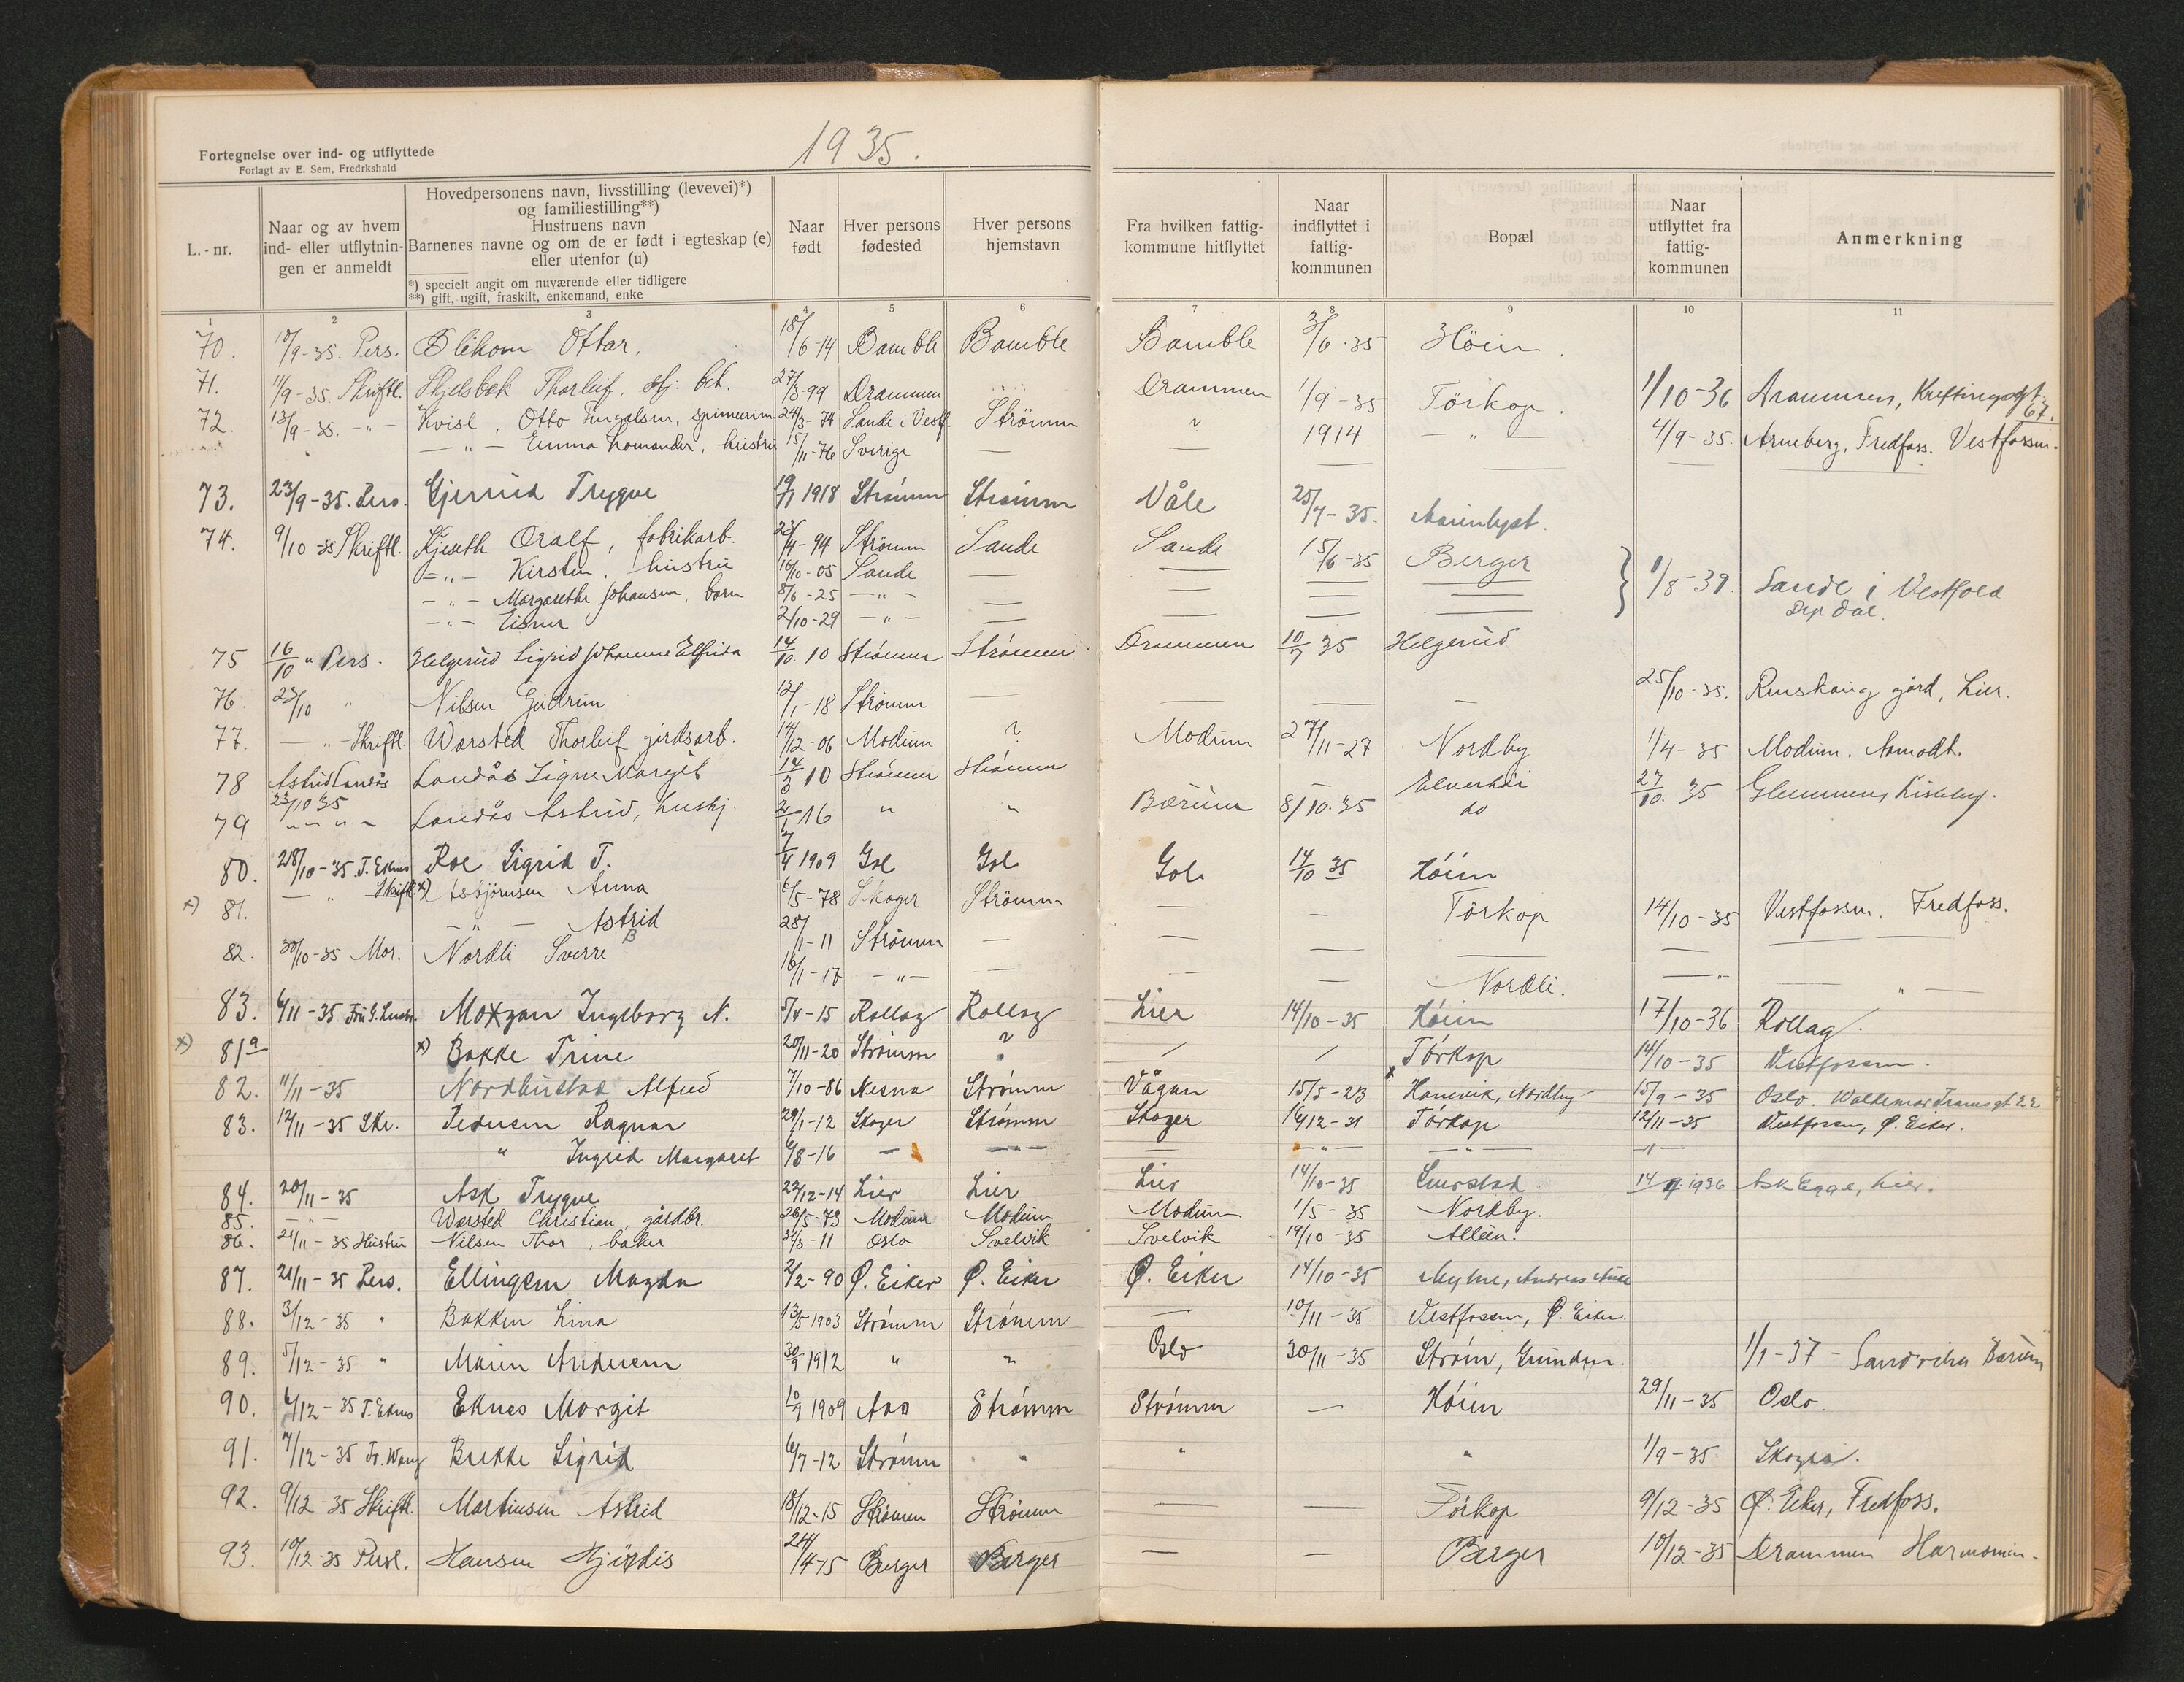 1935.
Fortegnelse over ind- og utflyttede
Forlagt av E. Sem, Fredrkshald
L.-nr. | Naar og av hvem ind- eller utflytningen er anmeldt | Hovedpersonens navn, livsstilling (levevei)*) og familiestilling**) Hustruens navn Barnenes navne og om de er født i egteskap (e) eller utenfor (u) *) specielt angit om nuværende eller tidligere **) gift, ugift, fraskilt, enkemand, enke | Naar født | Hver persons fødested | Hver persons hjemstavn | Fra hvilken fattigkommune hitflyttet | Naar indflyttet i fattigkommunen | Bopæl | Naar utflyttet fra fattigkommunen | Anmerkning
1 2 3 4 5 6 7 8 9 10 11
70. 10/9-35. Pers. Ottar. 18/6-14 Bamble Bamble Bamble 3/6-35 Höien.
71. 11/9-35. Skriftl. Skjelsbek Thorleif. 27/3-99 Drammen Drammen 1/9-35 Törkop. 1/10-36 Drammen, 67.
72. 13/9-35. -"- Kvisl, Otto 24/3-74 Sande i Vestf. Strömm " 1914 -"- 4/9-35. Arneberg, Fredfoss. Vestfossen.
-"- Emma hustru 15/11-76 Sverige —
73. 23/9-35. Pers. Gjerud Trygve 19/1 1918 Strömm Strömm Våle 25/7-35. Marienlyst.
74. 9/10-35 Skriftl. Kjeseth Oralf, fabrikarb. 23/4-94 Strömm Sande Sande 15/6-35 Berger 1/8-39. Sande i Vestfold
-"- Kirsten. hustru 16/10-05 Sande —
-"- Margarethe Johansen, barn 8/6-25 -"- —
-"- Einar 2/10-29 -"- —
75 16/10 " Pers. Helgerud Sigrid Johanne Elfrida 14/10. 10 Strömm Strömm Drammen 10/7 35 Helgerud
76. 23/10 " Nilsen Gudrun 12/1-18 Strömm — — — — 25/10-35. gård, Lier.
77. -"- Skriftl. Wærsted Thorleif gårdsarb. 14/12-06 Modum ? Modum 27/11-27 Nordby 1/4-35 Modum. Aamodt.
78 Astrid Landås 23/10 35 Landås Signe Margit 14/3 10 Strömm Strömm — Elverhöi 27/10. 35 Glemmen,
79 " " " Landås Astrid, hushj. 2/1 16 " " Bærum 8/10. 35 do
80. 28/10-35. T. Eknes Roe Sigrid T. 7/4 1909 Gol Gol Gol 14/10 35 Höien
x) 81. -"- Skriftl. x) Asbjörnsen Anna 6/5-78 Skoger Strömm — — Törkop 14/10-35 Vestfossen. Fredfoss.
-"- Astrid 28/1-11 Strömm —
82. 30/10-35 Mor. Nordli Sverre B 16/1-17 -"- — — — Nordli. -"- -"-
83. 6/11-35 Moxgan Ingeborg N. 5/4-15 Rollag Rollag Lier 14/10-35 Höien 17/10-36 Rollag.
x) 81a x) Bakke Trine 20/11-20 Strömm ? / / Törkop 14/10-35 Vestfossen.
82. 11/11-35 Nordhustad Alfred 7/10-86 Nesna Strömm Vågan 15/5-23 x Hanevik, Nordby 15/9-35 Oslo. Waldemar Tranes gt 22
83. 12/11-35 Skr. Pedersen Ragnar 29/1-12 Skoger Strömm Skoger 16/12-31 Törkop 12/11-35 Vestfossen, Ø. Eiker.
" Ingrid Margaret 6/8-16 — — — -"- -"- -"-
84. 20/11-35 Ask Trygve 22/12-14 Lier Lier Lier 14/10-35 14 1936 Ask Egge, Lier.
85. -"- Wærsted Christian, gårdbr. 26/5-73 Modum Modum Modum 1/5-35 Nordby.
86. 21/11-35 Hustru Nilsen Thor, baker 31/3-11 Oslo Svelvik Svelvik 19/10-35 Alleen.
87. 21/11-35 Pers. Ellingsen Magda 2/2-90 Ø. Eiker Ø. Eiker Ø. Eiker 14/10-35 Andreas
88. 3/12-35 " Bakken Lina 13/5 1903 Strömm Strömm — 10/11-35 Vestfossen, Ø. Eiker
89. 5/12-35 " Maren Andersen 30/9 1912 " " Oslo 30/11-35 Ström, 1/1-37 - Sandvika Bærum
90. 6/12-35 T. Eknes Eknes Margit 10/9 1909 Aas Strömm Strömm — Höien 29/11-35 Oslo.
91. 7/12-35 Brekke Sigrid 6/7-12 Strömm " " " 1/9-35 Skoger.
92. 9/12-35 Skriftl. Martinsen Astrid 18/12-15 Strömm Strömm — — Törkop 9/12-35 Ø. Eiker, Fredfoss.
93. 10/12-35 Persl. Hansen Hjördis 24/4-15 Berger Berger — — Berger 10/12-35 Drammen